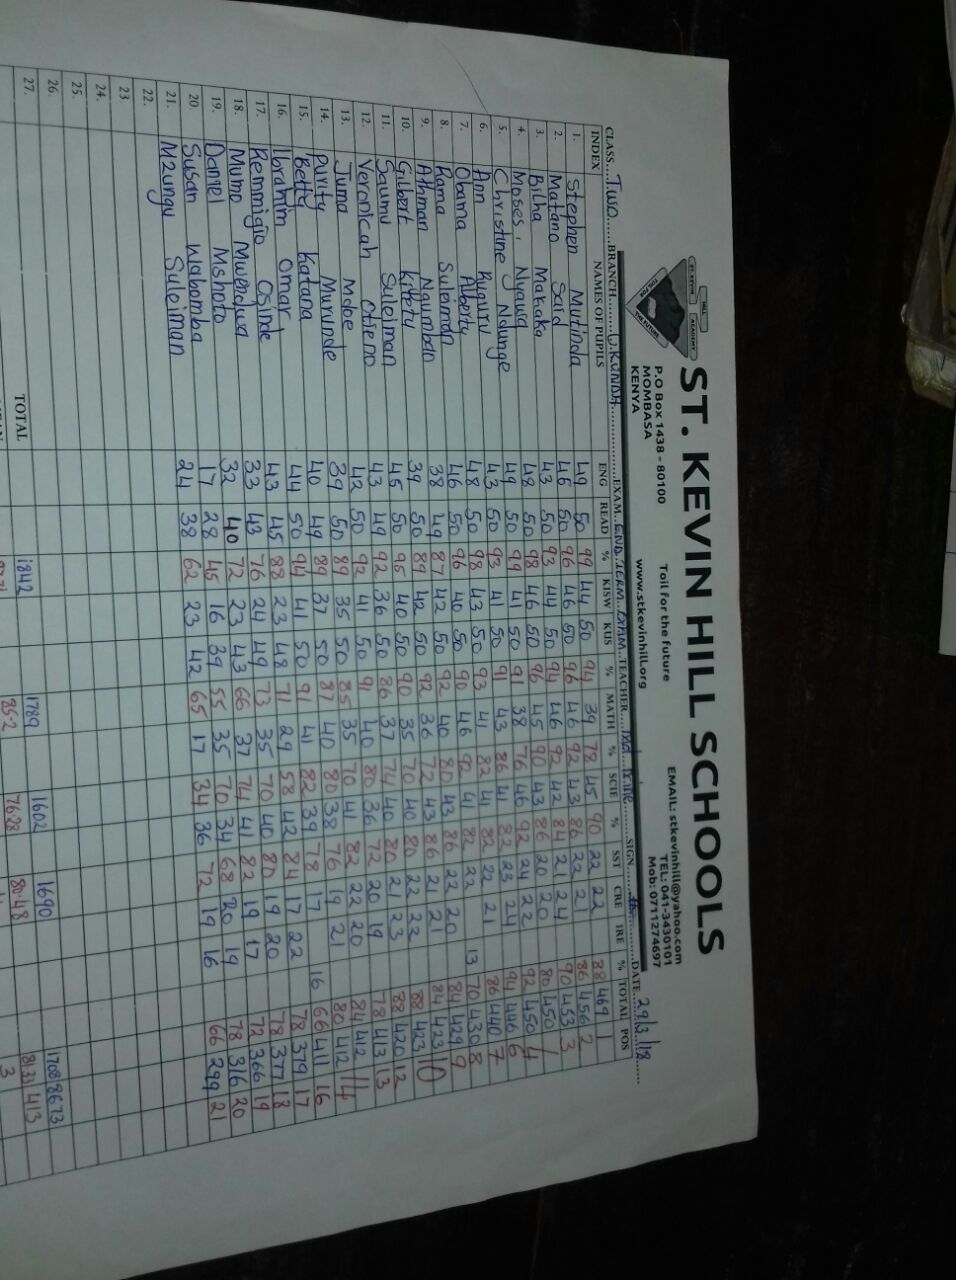 ST. KEVIN HILL SCHOOLS
ST KEVIN HILL ACADEMY
TOIL FOR THE FUTURE
P.O Box 1438 - 80100
MOMBASA
KENYA
Toil for the future
www.stkevinhill.org
EMAIL: stkevinhill@yahoo.com
TEL: 041-3430101
Mob: 0711274697
CLASS....Two.....BRANCH....U.KUNDA....EXAM. END TERM EXAM..TEACHER.......SIGN.......DATE..29/3/18
INDEX NAMES OF PUPILS ENG READ % KISW KUS % MATH % SCIE % SST CRE IRE % TOTAL POS
1. Stephen Mutinda 49 50 99 44 50 94 39 78 45 90 22 22 88 469 1
2. Matano Said 46 50 96 46 50 96 46 92 43 86 22 21 86 456 2
3. Bilha Makaka 43 50 93 44 50 94 46 92 42 84 21 24 90 453 3
4. Moses Nyawa 48 50 98 46 50 96 45 90 43 86 20 20 80 450 4
5. Christine Ndunge 49 50 99 41 50 91 38 76 46 92 24 22 92 450 4
6. Ann Kuguru 43 50 93 41 50 91 43 86 41 82 23 24 94 446 6
7. Obama Alberty 48 50 98 43 50 93 41 82 41 82 22 21 86 440 7
8. Rama Suleiman 46 50 96 40 50 90 46 92 41 82 22 13 70 430 8
9. Athman Ngumbao 38 49 87 42 50 92 40 80 43 86 22 20 84 429 9
10. Gilbert Kitetu 39 50 89 42 50 92 36 72 43 86 21 21 84 423 10
11. Saumu Suleiman 45 50 95 40 50 90 35 70 40 80 22 22 88 423
12. Veronicah Otieno 43 49 92 36 50 86 37 74 40 80 21 23 88 420 12
13. Juma Mobe 42 50 92 41 50 91 40 80 36 72 20 19 78 413 13
14. Purity Murunde 39 50 89 35 50 85 35 70 41 82 22 20 84 412 14
15. Betty Katana 40 49 89 37 50 87 40 80 38 76 19 21 80 412
16. Ibrahim Omar 44 50 94 41 50 91 41 82 39 78 17 16 66 411 16
17. Remmigio Osinde 43 45 88 23 48 71 29 58 42 84 17 22 78 379 17
18. Mumo Mwendwa 33 43 76 24 49 73 35 70 40 80 19 20 78 377 18
19. Daniel Mshoto 32 40 72 23 43 66 37 74 41 82 19 17 72 366 19
20. Susan Wabomba 17 28 45 16 39 55 35 70 34 68 20 19 78 316 20
21. Mzungu Suleiman 24 38 62 23 42 65 17 34 36 72 19 16 66 299 21
22.
23
24.
25.
26.
27.
TOTAL 1842 1789 1602 1690 1708 8673
85.2 76.28 80.48 81.33 413